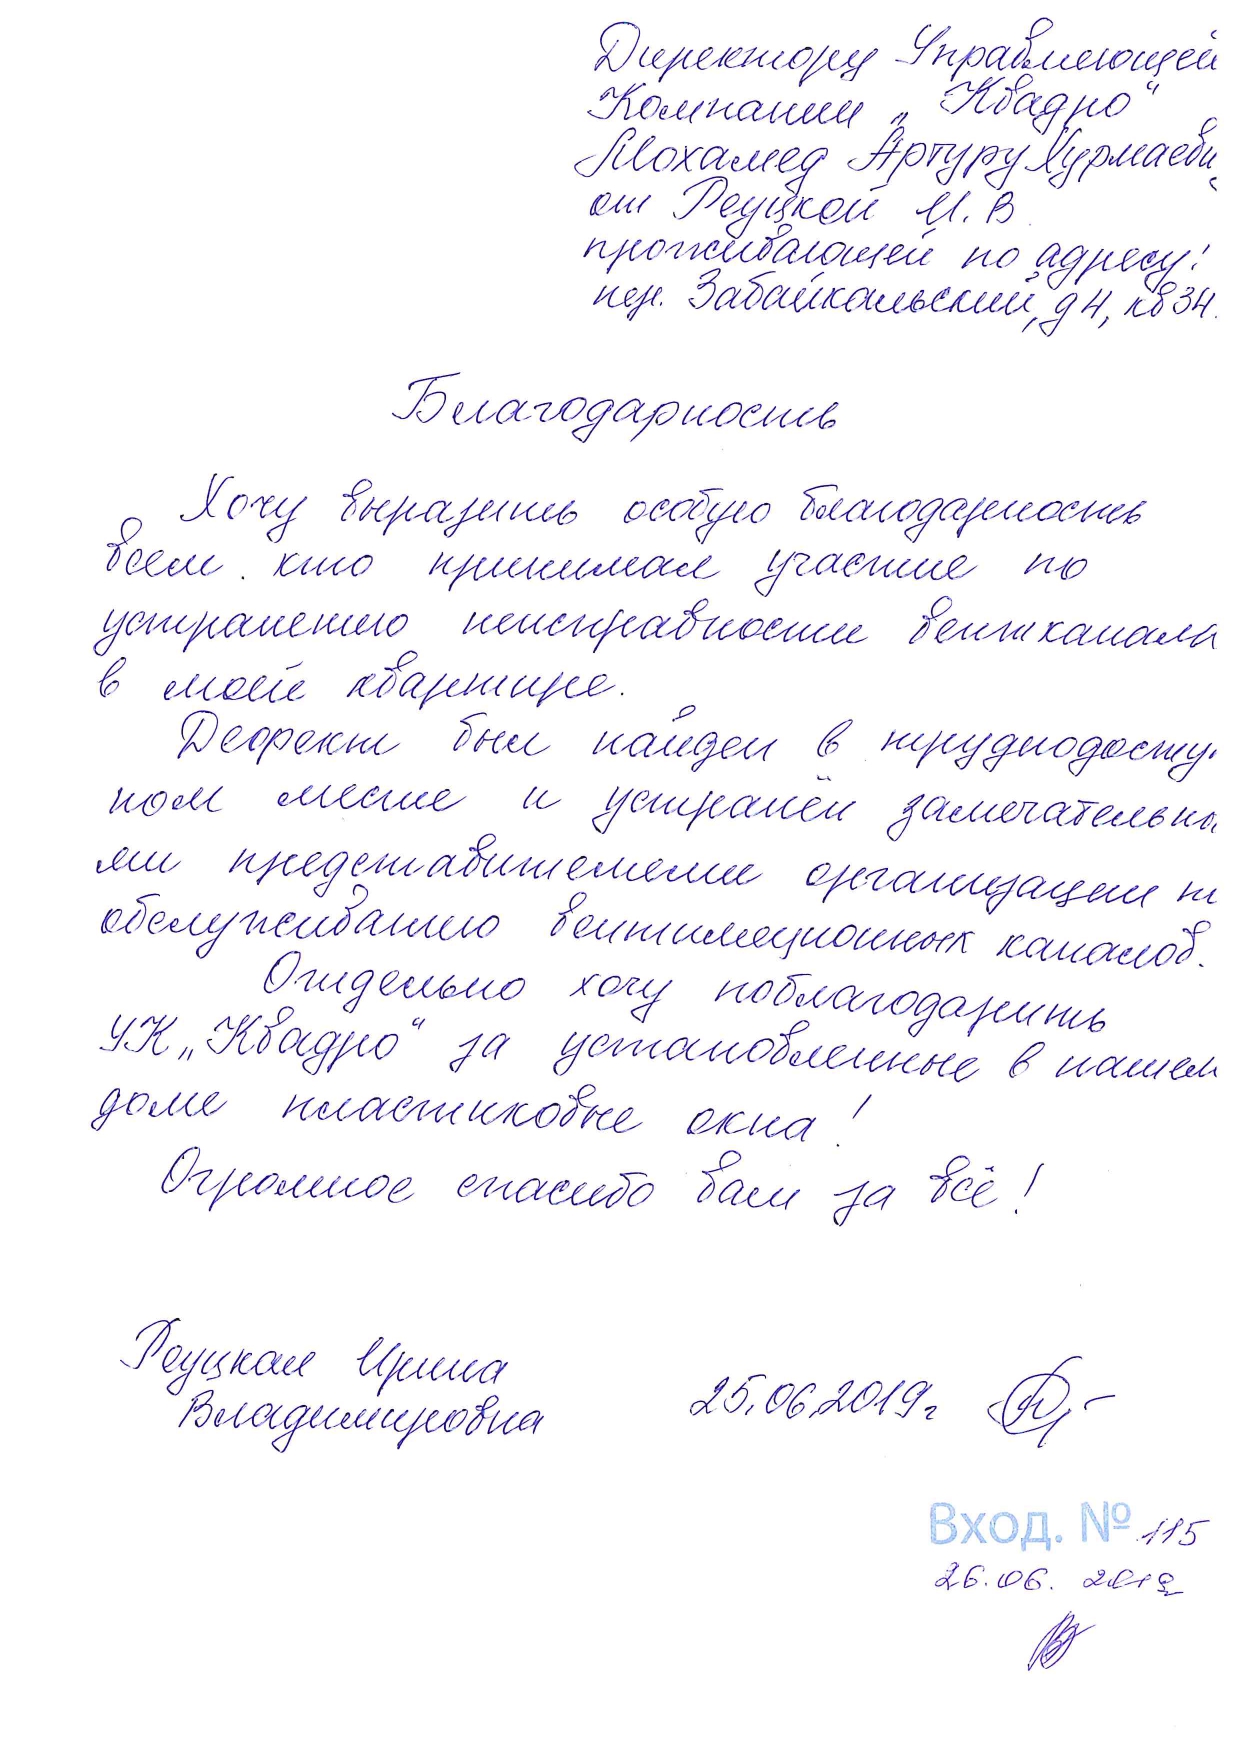 Директору Управляющей
Компании „Квадро“
Мохамед Артуру Хурмаеви
от Реуцкой И.В
проживающей по адресу:
пер. Забайкальский, д4, кв 34.
Благодарность
Хочу выразить особую благодарность
всем кто принимал участие по
устранению неисправности вентканала
в моей квартире.
Дефект был найден в труднодосту
ном месте и устранён замечательны
ми представителями организации п
обслуживанию вентиляционных каналов.
Отдельно хочу поблагодарить
УК „Квадро“ за установленные в нашем
доме пластиковые окна!
Огромное спасибо вам за всё!
Реуцкая Ирина
Владимировна
25.06.2019г
Вход. № 115
26.06. 2019